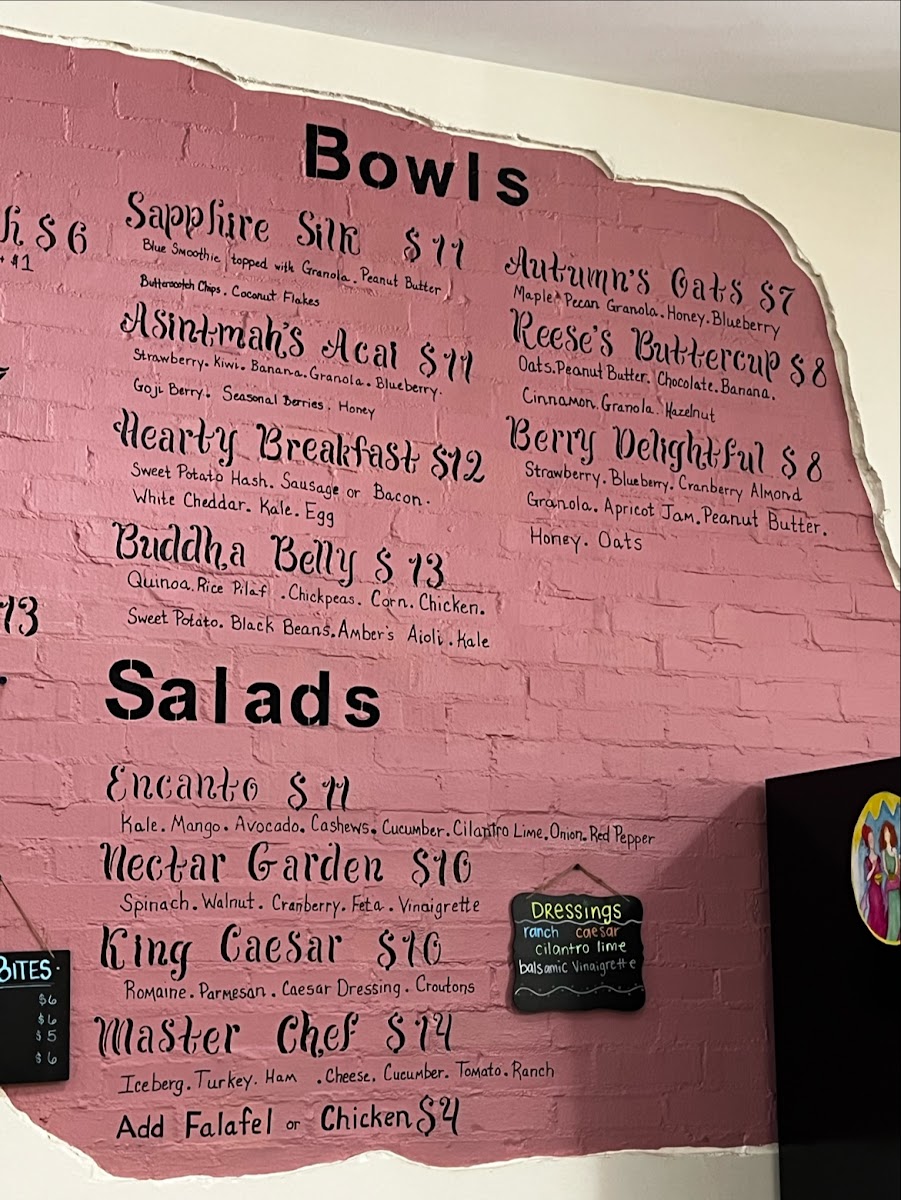 Bowls
$6
+ $1
Sapphire Silk $11
Blue Smoothie topped with Granola. Peanut Butter
Butterscotch Chips. Coconut Flakes
Asintmah's Acai $11
Strawberry. Kiwi. Banana. Granola. Blueberry.
Goji Berry. Seasonal Berries. Honey
Hearty Breakfast $12
Sweet Potato Hash. Sausage or Bacon.
White Cheddar. Kale. Egg
Buddha Belly $13
Quinoa. Rice Pilaf . Chickpeas. Corn. Chicken.
Sweet Potato. Black Beans. Amber's Aioli. Kale
Autumn's Oats $7
Maple Pecan Granola. Honey. Blueberry
Reese's Buttercup $8
Oats. Peanut Butter. Chocolate. Banana.
Cinnamon. Granola. Hazelnut
Berry Delightful $8
Strawberry. Blueberry. Cranberry Almond
Granola. Apricot Jam. Peanut Butter.
Honey. Oats
13
Salads
Encanto $11
Kale. Mango. Avocado. Cashews. Cucumber. Cilantro Lime. Onion. Red Pepper
Nectar Garden $10
Spinach. Walnut. Cranberry. Feta. Vinaigrette
King Caesar $10
Romaine. Parmesan. Caesar Dressing. Croutons
Master Chef $14
Iceberg. Turkey. Ham . Cheese. Cucumber. Tomato. Ranch
Add Falafel or Chicken $4
Dressings
ranch caesar
cilantro lime
balsamic Vinaigrette
BITES.
$6
$6
$5
$6